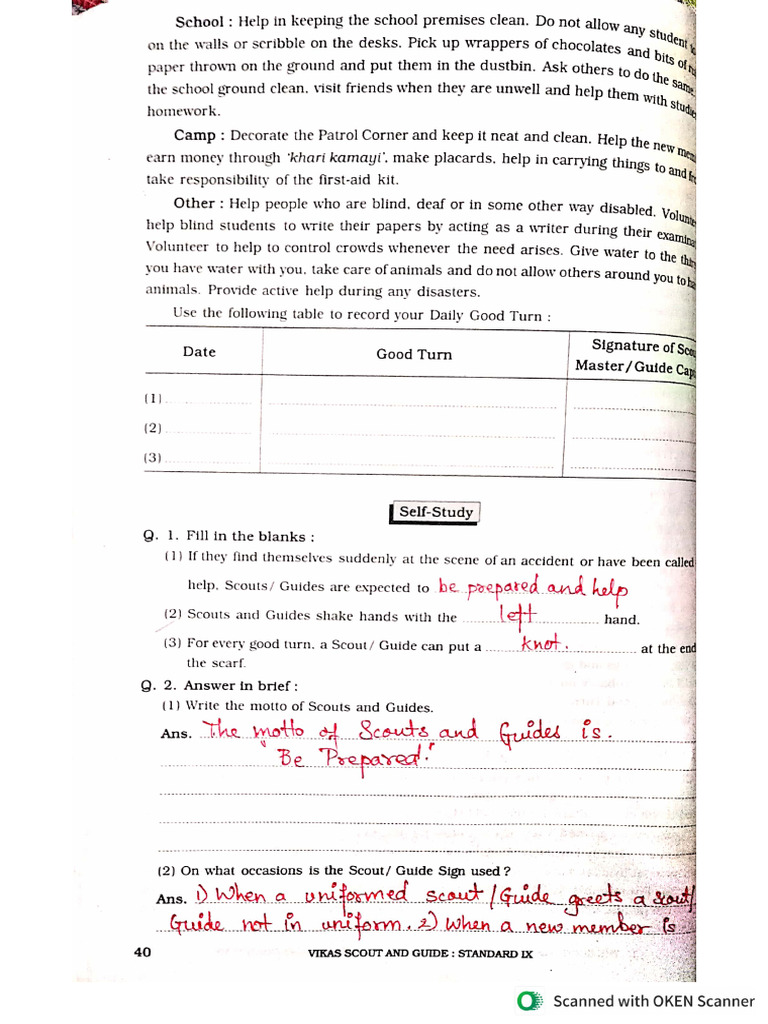 School : Help in keeping the school premises clean. Do not allow any student
on the walls or scribble on the desks. Pick up wrappers of chocolates and bits of
paper thrown on the ground and put them in the dustbin. Ask others to do the same.
the school ground clean, visit friends when they are unwell and help them with
homework.
Camp : Decorate the Patrol Corner and keep it neat and clean. Help the new
earn money through 'khari kamayi', make placards, help in carrying things to and
take responsibility of the first-aid kit.
Other : Help people who are blind, deaf or in some other way disabled.
help blind students to write their papers by acting as a writer during their
Volunteer to help to control crowds whenever the need arises. Give water to the
you have water with you, take care of animals and do not allow others around you to
animals. Provide active help during any disasters.
Use the following table to record your Daily Good Turn :
Date Good Turn Signature of
Master/Guide
(1)
(2)
(3)
Self-Study
Q. 1. Fill in the blanks :
(1) If they find themselves suddenly at the scene of an accident or have been called
help, Scouts/ Guides are expected to be prepared and help
(2) Scouts and Guides shake hands with the left hand.
(3) For every good turn, a Scout/ Guide can put a knot. at the end
the scarf.
Q. 2. Answer in brief :
(1) Write the motto of Scouts and Guides.
Ans. The motto of Scouts and Guides is.
"Be Prepared."
(2) On what occasions is the Scout/ Guide Sign used ?
Ans. 1) When a uniformed scout/Guide greets a scout/
Guide not in uniform. 2) When a new member is
40 VIKAS SCOUT AND GUIDE : STANDARD IX
Scanned with OKEN Scanner